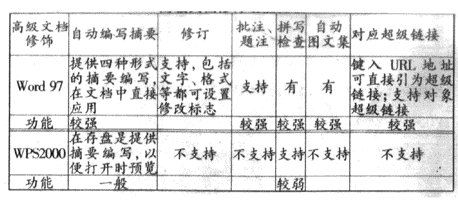 高级文档修饰 自动编写摘要 修订 批注、题注 拼写检查 自动图文集 对应超级链接
Word 97 提供四种形式的摘要编写,在文档中直接应用 支持,包括文字、格式等都可设置修改标志 支持 有 有 键入 URL 地址可直接引为超级链接;支持对象超级链接
功能 较强 较强 较强 较强 较强
WPS2000 在存盘是提供摘要编写,以便打开时预览 不支持 不支持 支持 不支持 不支持
功能 一般 较弱